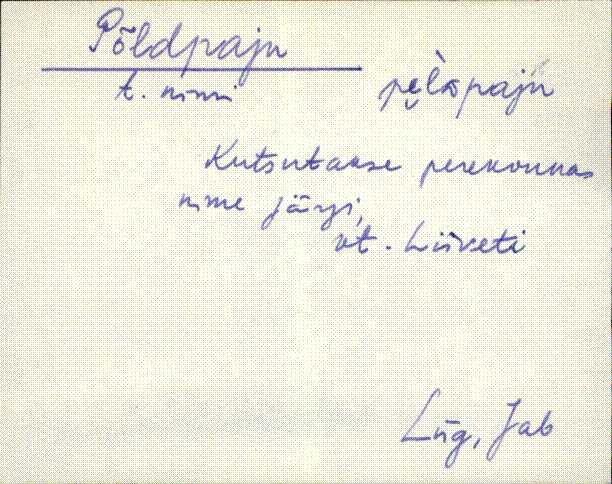 Põldpaju
t. nimi pe̮l̀Dpaju
Kutsutakse perekonnas
nime järgi,
vt. Liiveti
Lüg, Jab